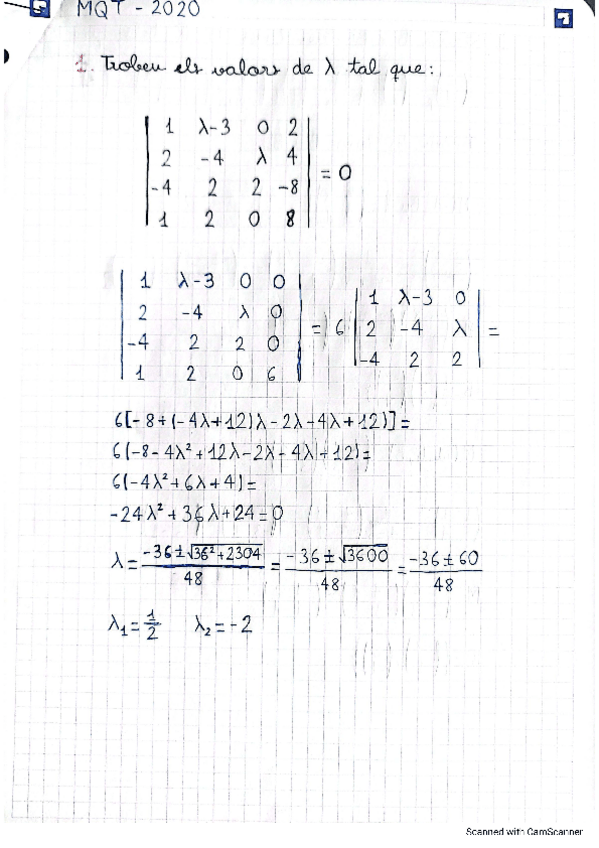 MQT - 2020
1. Trobeu els valors de λ tal que:
| 1 λ-3 0 2 |
| 2 -4 λ 4 |
| -4 2 2 -8 | = 0
| 1 2 0 8 |
| 1 λ-3 0 0 |
| 2 -4 λ 0 |
| -4 2 2 0 |
| 1 2 0 6 |
= 6
| 1 λ-3 0 |
| 2 -4 λ |
| -4 2 2 |
=
6[-8+(-4λ+12)λ-2λ-4λ+12)]=
6(-8-4λ²+12λ-2λ-4λ+12)=
6(-4λ²+6λ+4)=
-24λ²+36λ+24=0
λ = (-36±√(36²+2304))/48 = (-36±√3600)/48 = (-36±60)/48
λ₁=1/2 λ₂=-2
Scanned with CamScanner